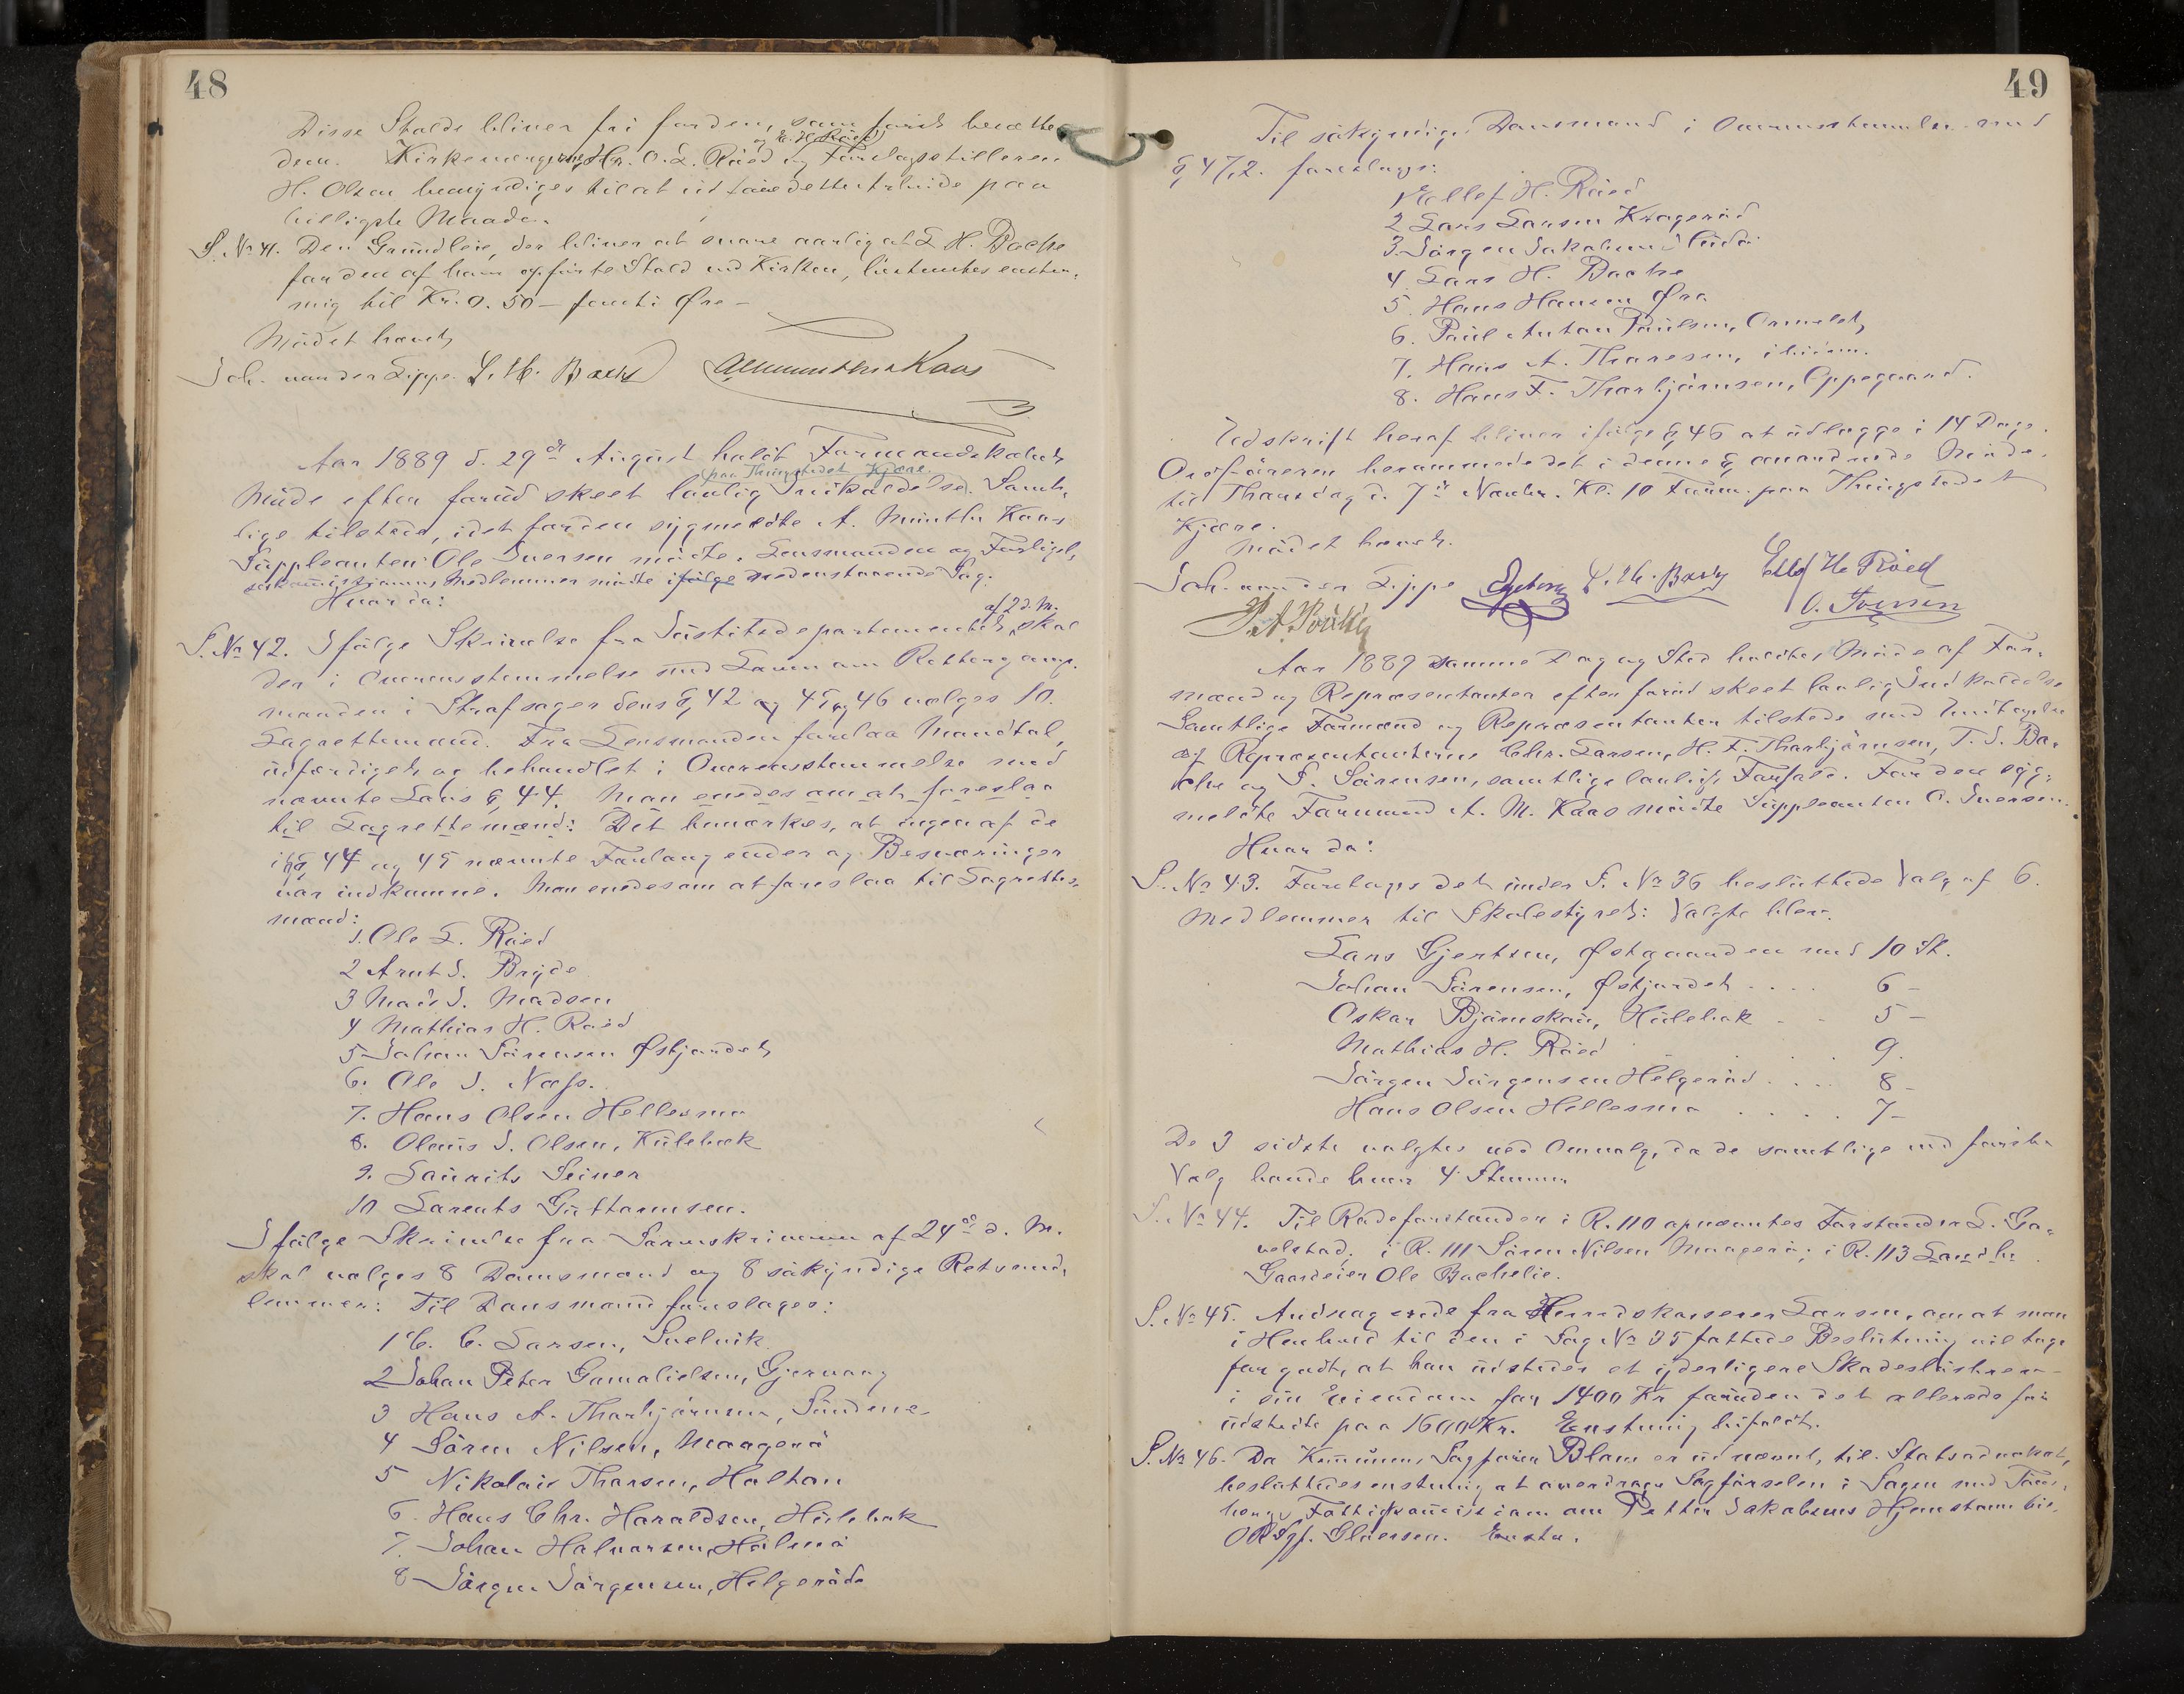 48
Disse Stalde bliver fri for den, som først besætter
og E. H. Röed
dem. Kirkeværgerne Hr. O. L. Röed og Forslagsstilleren
H. Olsen bemyndiges til at udføre dette Arbeide paa
billigste Maade.
S. No 41. Den Grundleie, der bliver at svare aarlig af L. H. Bache
for den af ham opførte Stald ved Kirken, bestemtes enstem-
mig til Kr. 0.50 – femti Øre –
Mödet hævet
Joh. van der Lippe L. H. Bache A Munthe Kaas
Aar 1889 d. 29de August holdt Formandskabet
paa Thingstedet Kjære.
Möde efter forud skeet lovlig Indkaldelse. Samt-
lige tilstede, idet for den sygmeldte A. Munthe Kaas
Suppleanten Ole Iversen mödte. Lensmanden og Forligel-
seskommissionens Medlemmer mödte ifölge nedenstaaende Sag.
Hvor da:
af 2 d. M.
S. No 42. Ifölge Skrivelse fra Justitsdepartementet skal
der i Overensstemmelse med Loven om Rettergangs-
maaden i Straffesager dens § 42 og 45 og 46 vælges 10
Lagrettemænd. Fra Lensmanden forelaa Mandtal,
udfærdiget og behandlet i Overensstemmelse med
nævnte Lovs § 44. Man enedes om at foreslaa
til Lagrettemænd: Det bemærkes, at ingen af de
i §§ 44 og 45 nævnte Forlangender og Besværinger
var indkomne. Man enedes om at foreslaa til Lagrettes-
mænd:
1. Ole L. Röed
2 Arnt J. Bryde
3 Mads J. Madsen
4 Mathias H. Röed
5 Johan Sörensen Østjordet
6. Ole J. Næss.
7. Hans Olsen Hellesmo
8. Olaus J. Olsen, Kulebæk
9. Laurits Seiner
10 Lorents Guttormsen.
Ifölge Skrivelse fra Sorenskriveren af 24de d. M.
skal vælges 8 Domsmænd og 8 sökyndige Retsmed-
lemmer: Til Domsmænd foreslages:
1 C. C. Larsen, Snelvik
2 Johan Peter Gamalielsen, Gjervaag
3 Hans A. Thorbjörnsen, Sundene
4 Sören Nilsen, Maagerö
5 Nikolai Thorsen, Holtan
6. Hans Chr. Haraldsen, Hulebak
7. Johan Halvorsen, Holmö
8 Jörgen Jörgensen, Helgeröd
49
Til sökyndige Domsmænd i Overensstemmelse med
§ 47,2. foreslages:
1 Ellef H. Röed
2 Lars Larsen Krageröd
3. Jörgen Jakobsen
4 Lars H. Bache
5. Hans Hansen Øra
6. Paul Anton Paulsen,
7. Hans A. Thoresen, ibidem.
8. Hans F. Thorbjörnsen, Oppegaard.
Udskrift heraf bliver ifölge § 46 at udlægge i 14 Dage.
Ordföreren berammede det i denne § anordnede Möde
til Thorsdag d. 7de Novbr. Kl. 10 Form. paa Thingstedet
Kjære.
Mödet hævet.
Joh. van der Lippe L. H. Bache Ellef H. Röed
O. Iversen
Aar 1889 samme Dag og Sted holdtes Möde af For-
mænd og Repræsentanter efter forud skeet lovlig Indkaldelse
Samtlige Formænd og Repræsentanter tilstede med Undtagelse
af Repræsentanterne Chr. Larsen, H. F. Thorbjörnsen, T. J. Ba-
che og S. Sörensen, samtlige lovligt Forfald. For den syg-
meldte Formand A. M. Kaas mödte Suppleanten O. Iversen.
Hvor da:
S. No 43. Foretoges det under S. No 36 besluttede Valg af 6.
Medlemmer til Skolestyret: Valgte blev.
Lars Gjertsen, Østgaarden med 10 St.
Johan Sörensen, Østjordet .... 6 –
Oskar Bjørnskau, Hulebak – – 5 –
Mathias H. Röed .... 9.
Jörgen Jörgensen Helgeröd .... 8 –
Hans Olsen Hellesmo ..... 7 –
De 3 sidste valgtes ved Omvalg, da de samtlige ved förste
Valg havde hver 4 Stemmer
S. No 44. Til Rodeforstander i R. 110 opnævntes Forstander L. Ga-
velstad; i R. 111 Sören Nilsen Maagerö; i R. 113
Gaardeier Ole Bachelie.
S. No 45. Andragende fra Herredskasserer Larsen, om at man
i Henhold til den i Sag No 35 fattede Beslutning vil tage
for godt, at han udsteder et yderligere Skadeslösbrev
i sin Eiendom for 1400 Kr foruden det allerede för
udstedte paa 1600 Kr. Enstemmig bifaldt.
S. No 46. Da Kommunens Sagförer Blom er udnævnt til Statsadvokat,
besluttedes enstemmig at overdrage Sagförselen i Sagen med Töns-
bergs Fattigkommission om Petter Jakobsens Hjemstavn til
ORSgf. Gløersen. Enst.